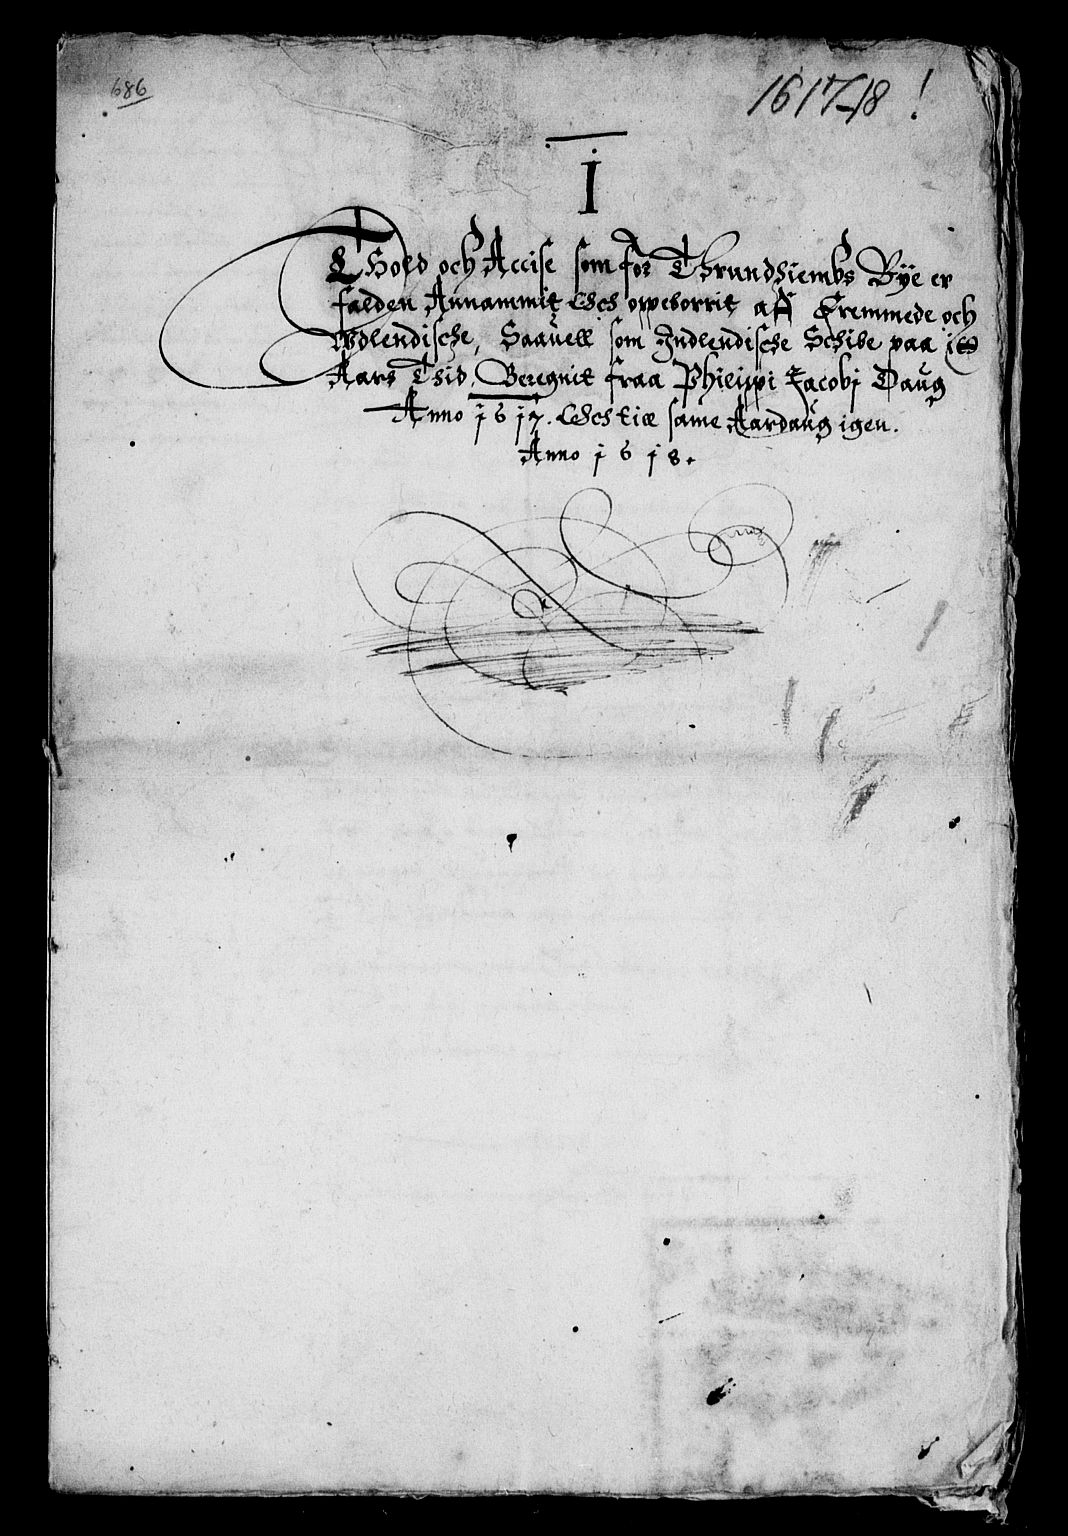 686
1617-18!
I
Thold och Accise som for Thrundhiembs Bye er
falden Annammit Och oppeborrit aff Fremmede och
Wdlendische, Saauell som Indlendische Schibe paa it
Aars Thid, Beregnit fraa Philippi Jacobj Daug
Anno 1617. Och till same Aardaug igen.
Anno 1618.